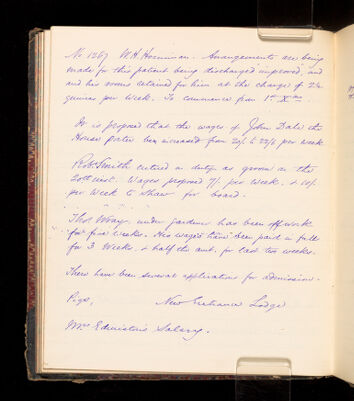 No 1267 W.H. Horniman. Arrangements are being
made for this patient being discharged improved, and
and his rooms retained for him at the charge of 2½
guineas per week. To commence from 1st
It is proposed that the wages of John Dale the
House porter be increased from 20/- to 22/6 per week
Robt Smith entered on duty as groom on the
20th inst. Wages proposed 7/- per week, & 10/-
per week to Shaw for board.
Thos Wray under gardener has been off work
for five weeks. His wages have been paid in full
for 3 weeks, & half the amt. for last two weeks.
There have been several applications for admission.
Pigs, New Entrance Lodge
Mrs Edmiston's Salary.